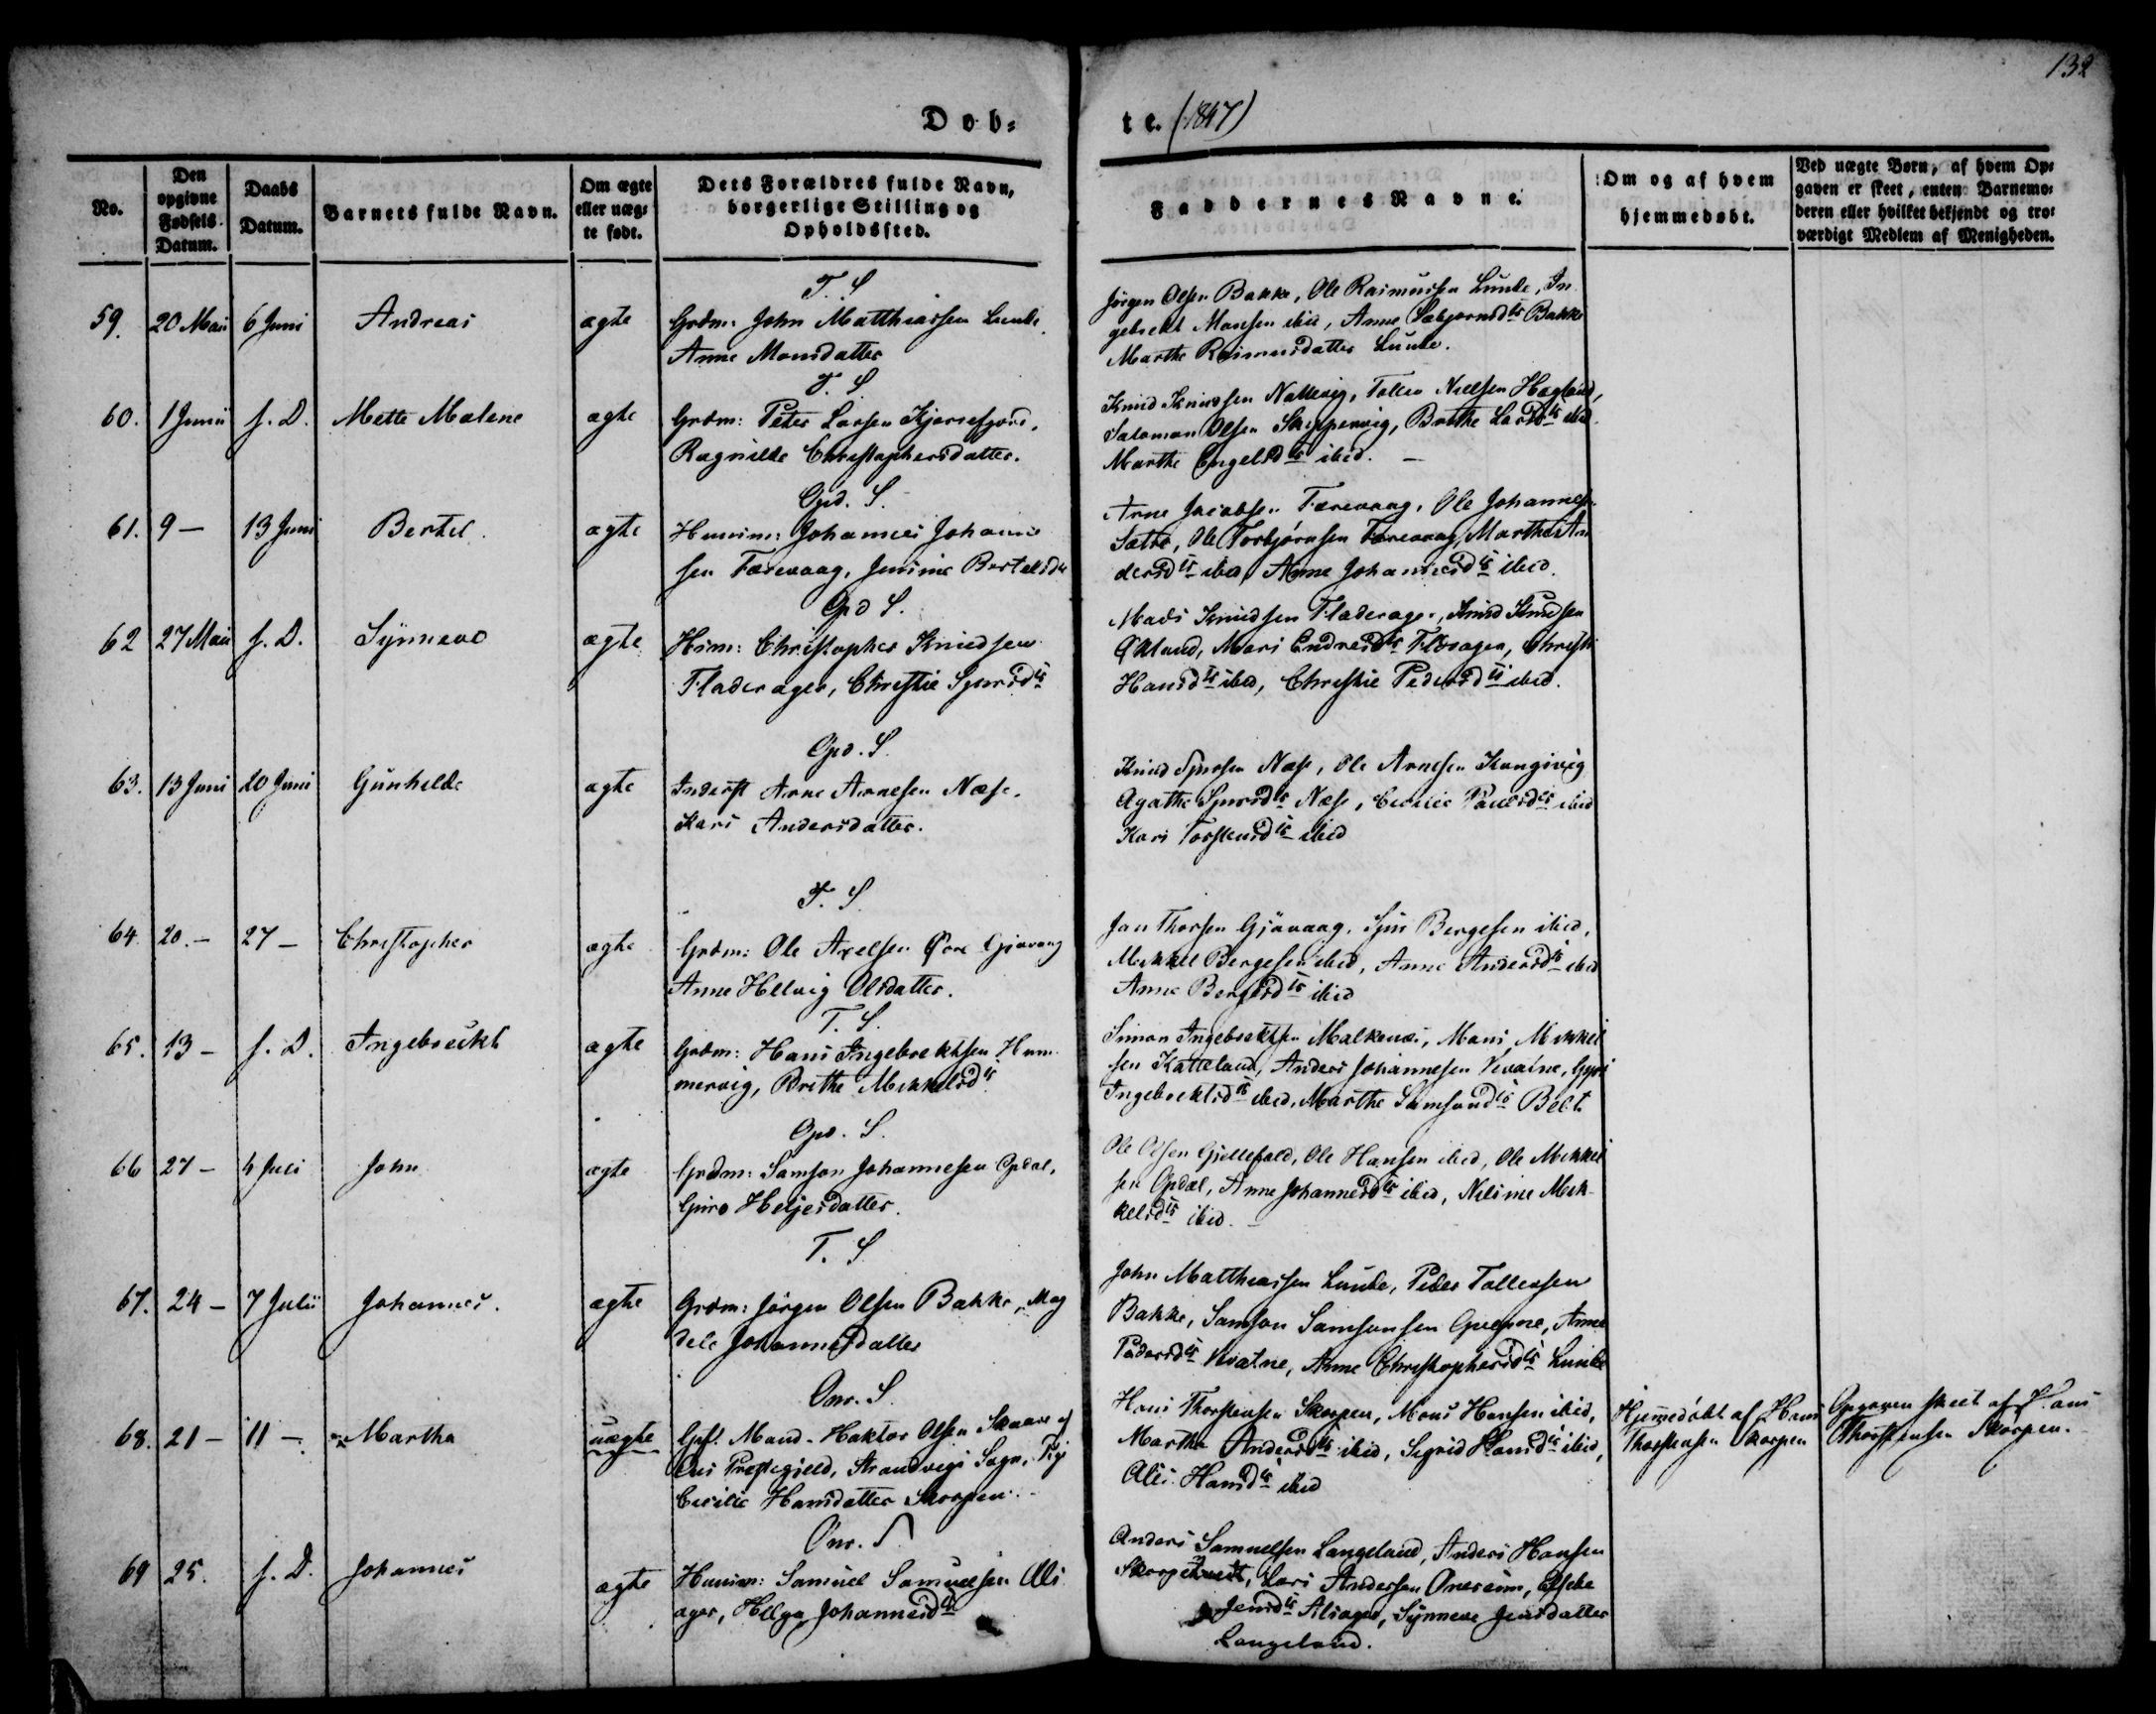 132
Døb-
te. (1847)
No.
Den opgivne Fødsels-Datum.
Daabs Datum.
Barnets fulde Navn.
Om ægte eller uæg-te født.
Dets Forældres fulde Navn, borgerlige Stilling og Opholdssted.
Faddernes Navne.
Om og af hvem hjemmedøbt.
Ved uægte Børn, af hvem Op-gaven er skeet, enten Barnemo-deren eller hvilket bekjendt og tro-værdigt Medlem af Menigheden.
T. S
59. 20 Maii 6 Juni Andreas ægte Grdm: John Matthiassen Lunde
Anne Monsdatter
Jørgen Olsen Bakke, Ole Rasmussen Lunde, In
gebrekt Monsen ibid, Anne Bakke
Marthe Rasmusdatter Lunde.
T. S.
60. 1 Junii f. D. Mette Malene ægte Grdm: Peter Larsen
Ragnilde Christophersdatter.
Knud Knudsen Nottevig, Tollev Nielsen Hagland,
Salomon Olsen Skippervig, Brithe Larsdtr ibid.
Marthe Engelsdtr ibid. —
Opd. S.
61. 9 — 13 Juni Bertel. ægte Huusm: Johannes Johanne
sen Færevaag, Jensine Bertelsdtr
Arne Jacobsen Færevaag, Ole Johannes
Sætre, Ole Torbjørnsen Færevaag, Marthe An
dersdtr ibid, Anne Johannesdtr ibid.
Opd S.
62 27 Maii f. D. Synneve ægte Hsm: Christopher Knudsen
Fladerager, Christie Sjursdtr
Mads Knudsen Fladerager, Knud Knudsen
Økland, Mari Endresdtr Christi
Hansdtr ibid, Christie Pedersdtr ibid.
Opd. S.
63. 13 Juni 20 Juni Gunhilde ægte Inderst Arne Arnesen Næss.
Kari Andersdatter.
Knud Sjursen Næss, Ole Arnesen Kongsvig
Agathe Sjursdtr Næss, Paulsdtr ibid
Kari Torstensdtr ibid
T. S.
64. 20. — 27 — Christopher ægte Grdm: Ole Axelsen Øvre Gjøvaag
Anne Helvig Olsdatter.
Jan Thorsen Gjøvaag, Sjur Bergesen ibid,
Mikkel Bergesen ibid, Anne Andersdtr ibid
Anne Bergesdtr ibid
T. S.
65. 13 — f. D. Ingebreckt ægte Grdm: Hans Ingebrektsen Hum
mervig, Brithe Mikkelsdtr
Simon Ingebrektsen Malkenes, Mons Mikkel
sen Katteland, Anders Johannesen Vevatne, Gyri
Ingebrektsdtr ibid, Marthe Samsonsdtr Belt.
Opd. S.
66 27 — 4 Juli John ægte Grdm: Samson Johannesen Opdal,
Guro Heljesdatter.
Ole Olsen Ole Hansen ibid, Ole Mikkel
sen Opdal, Anne Johannesdtr ibid, Nilsine Mik-
kelsdtr ibid.
T. S
67. 24 — 7 Julii Johannes. ægte Grdm: Jørgen Olsen Bakke, Mag
dele Johannesdatter
John Matthiassen Lunde, Peder Tollevsen
Bakke, Samson Samsonsen Anne
Pedersdtr Vevatne, Anne Christophersdtr Lunde
Onr. S.
68. 21 — 11 —. Martha uægte Gift Mand. Haktor Olsen Skaar af
Ous Præstegjeld, Strandvigs Sogn, Pige
Cecilie Hansdatter Skorpen.
Hans Thorstensen Skorpen, Mons Hansen ibid,
Martha Andersdtr ibid, Sigrid Hansdtr ibid,
Ales Hansdtr ibid
Hjemedøbt af Hans
Thorstensen Skorpen
Opgaven skeet af Hans
Thorstensen Skorpen.
Onr. S
69 25. f. D. Johannes ægte Huusm: Samuel Samuelsen Als
ager, Helga Johannesdtr
Anders Samuelsen Langeland, Anders Hansen
Lars Andersen Elsebe
Jensdtr Alsager, Synneve Jensdatter
Langeland.